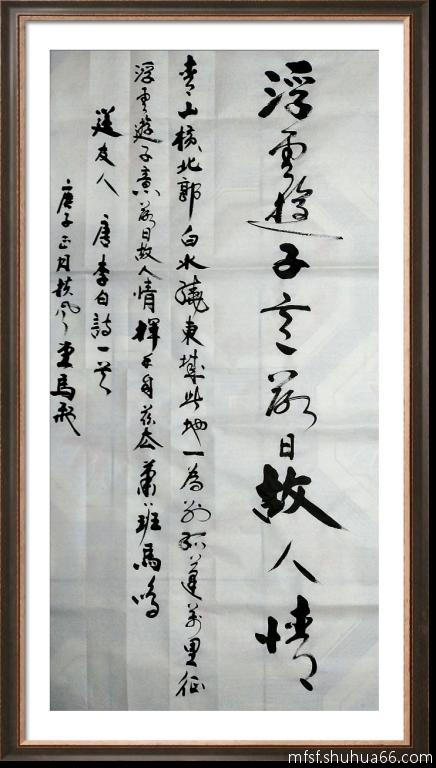 浮雲遊子意落日故人情
青山橫北郭白水繞東城此地一為別孤蓬萬里征
浮雲遊子意落日故人情揮手自茲去蕭〻班馬鳴
送友人 唐李白詩一首
庚子正月扶風堂馬
mfsf.shuhua66.com